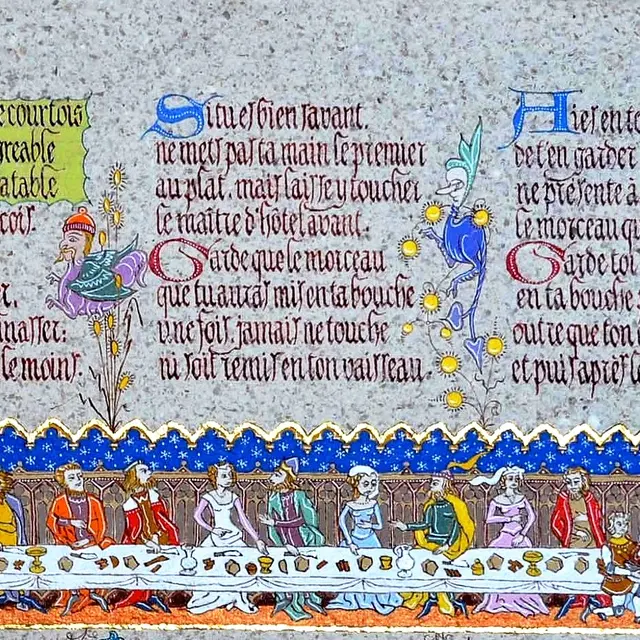 e courtois
greable
a table
cois.
r.
masser:
le moins.
Si tu es bien savant,
ne mets pas ta main le premier
au plat, mais laisse y toucher
le maître d'hôtel avant.
Garde que le morceau
que tu auras mis en ta bouche
une fois, jamais ne touche
ni soit remis en ton vaisseau.
Aies en te
de t'en garder
ne présente à
le morceau qu
Garde toi
en ta bouche
outre que ton
et puis après le